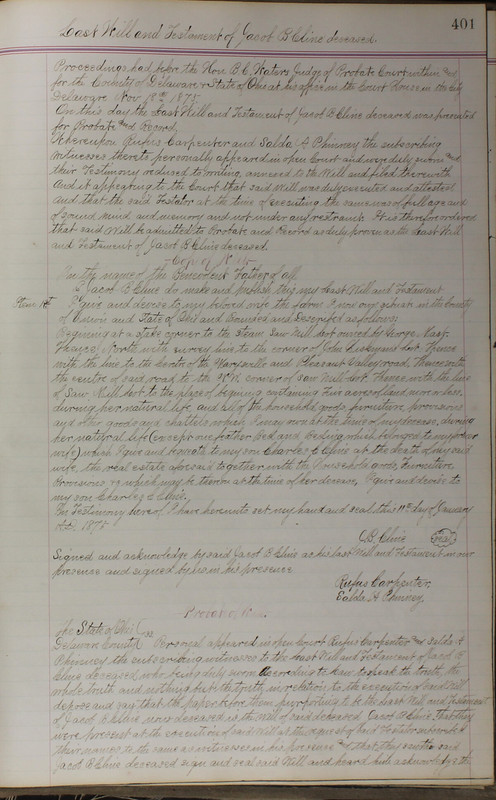 401
Last Will and Testament of Jacob B Cline deceased.
Proceedings had before the Hon B.C. Waters Judge of Probate Court within and
for the County of Delaware & State of Ohio at his office in the Court House in the City
Delaware Nov 18th 1875
On this day the Last Will and Testament of Jacob B Cline deceased was presented
for Probate and Record,
Whereupon Rufus Carpenter and Salda A Phinney the subscribing
witnesses thereto personally appeared in open Court and were duly sworn and
their Testimony reduced to writing, annexed to the Will and filed therewith
And it appearing to the Court that said Will was duly executed and attested
And that the said Testator at the time of executing the same was of full age and
of sound mind and memory and not under any restraint. It is therefore ordered
that said Will be admitted to Probate and Record as duly proven as the Last Will
and Testament of Jacob B Cline deceased
Copy of Will
In the name of the Benevolent Father of all
I Jacob B Cline do make and publish this my Last Will and Testament
Item 1st I give and devise to my beloved wife the farm I now own in the County
of Union and State of Ohio and Bounded and Described as follows;
Beginning at a stake corner to the Steam Saw Mill Lot owned by George
Thence North with survey line to the corner of John Lot. Thence
with the line to the centre of the Marysville and Pleasant Valley road, Thence with
the centre of said road to the N.W. corner of Saw Mill Lot Thence with the line
of Saw Mill Lot to the place of begining containing Five acres of land more or less
during her natural life and all of the household goods, furniture, provisions
and other goods and chattels which I may own at the time of my decease, during
her natural life (except one feather Bed and Beding which belonged to my former
wife) which I give and bequeath to my son Charles E Cline at the death of my said
wife, the real estate aforesaid together with the Household goods, furniture
Provisions &c which may be there at the time of her decease, I give and devise to
my son Charles E Cline.
In Testimony hereof I have hereunto set my hand and seal this 11th day of January
A.D. 1875
J.B. Cline Seal
Signed and acknowledge by said Jacob B Cline as his last Will and Testament in our
presence and signed by us in his presence
Rufus Carpenter,
Salda A Phinney,
The State of Ohio ss
Delaware County Personal appeared in open Court Rufus Carpenter and Salda A
Phinney the subscribing witnesses to the Last Will and Testament of Jacob B
Cline deceased who being duly sworn According to Law to speak the truth, the
whole truth and nothing but the truth in relation to the execution of said Will
depose and say that the paper before them purporting to be the Last Will and Testament
of Jacob B Cline now deceased is the Will of said deceased Jacob B Cline, That they
were present at the execution of said Will at the request of said Testator subscribed
their names to the same as witnesses in his presence and that they saw the said
Jacob B Cline deceased sign and seal said Will and heard him acknowledge the